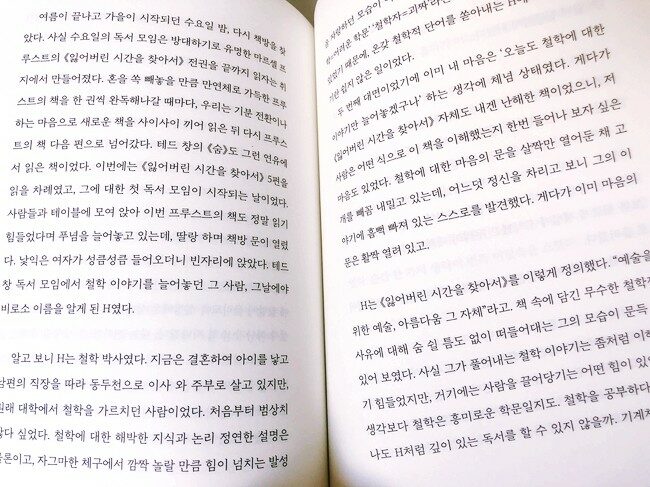 여름이 끝나고 가을이 시작되던 수요일 밤, 다시 책방을 찾
았다. 사실 수요일의 독서 모임은 방대하기로 유명한 마르셀 프
루스트의 《잃어버린 시간을 찾아서》 전권을 끝까지 읽자는 취
지에서 만들어졌다. 혼을 쏙 빼놓을 만큼 만연체로 가득한 프루
스트의 책을 한 권씩 완독해나갈 때마다, 우리는 기분 전환이나
하는 마음으로 새로운 책을 사이사이 끼어 읽은 뒤 다시 프루스
트의 책 다음 편으로 넘어갔다. 테드 창의 《숨》도 그런 연유에
서 읽은 책이었다. 이번에는 《잃어버린 시간을 찾아서》 5편을
읽을 차례였고, 그에 대한 첫 독서 모임이 시작되는 날이었다.
사람들과 테이블에 모여 앉아 이번 프루스트의 책도 정말 읽기
힘들었다며 푸념을 늘어놓고 있는데, 딸랑 하며 책방 문이 열렸
다. 낯익은 여자가 성큼성큼 들어오더니 빈자리에 앉았다. 테드
창 독서 모임에서 철학 이야기를 늘어놓던 그 사람, 그날에야
비로소 이름을 알게 된 H였다.
알고 보니 H는 철학 박사였다. 지금은 결혼하여 아이를 낳고
남편의 직장을 따라 동두천으로 이사 와 주부로 살고 있지만,
원래 대학에서 철학을 가르치던 사람이었다. 처음부터 범상치
않다 싶었다. 철학에 대한 해박한 지식과 논리 정연한 설명은
물론이고, 자그마한 체구에서 깜짝 놀랄 만큼 힘이 넘치는 발성
을 자랑하던 모습이
학=어려운 학문' '철학자=괴짜'라는
었기 때문에, 온갖 철학적 단어를 쏟아내는 H에
기란 쉽지 않은 일이었다.
두 번째 대면이었기에 이미 내 마음은 '오늘도 철학에 대한
이야기만 늘어놓겠구나' 하는 생각에 체념 상태였다. 게다가
《잃어버린 시간을 찾아서》 자체도 내겐 난해한 책이었으니, 저
사람은 어떤 식으로 이 책을 이해했는지 한번 들어나 보자 싶은
마음도 있었다. 철학에 대한 마음의 문을 살짝만 열어둔 채 고
개를 빼꼼 내밀고 있는데, 어느덧 정신을 차리고 보니 그의 이
야기에 흠뻑 빠져 있는 스스로를 발견했다. 게다가 이미 마음의
문은 활짝 열려 있고.
H는 《잃어버린 시간을 찾아서》를 이렇게 정의했다. "예술을
위한 예술, 아름다움 그 자체"라고. 책 속에 담긴 무수한 철학
사유에 대해 숨 쉴 틈도 없이 떠들어대는 그의 모습이 문득
있어 보였다. 사실 그가 풀어내는 철학 이야기는 좀처럼 이해
기 힘들었지만, 거기에는 사람을 끌어당기는 어떤 힘이 있
생각보다 철학은 흥미로운 학문일지도. 철학을 공부하다
나도 H처럼 깊이 있는 독서를 할 수 있지 않을까. 기계